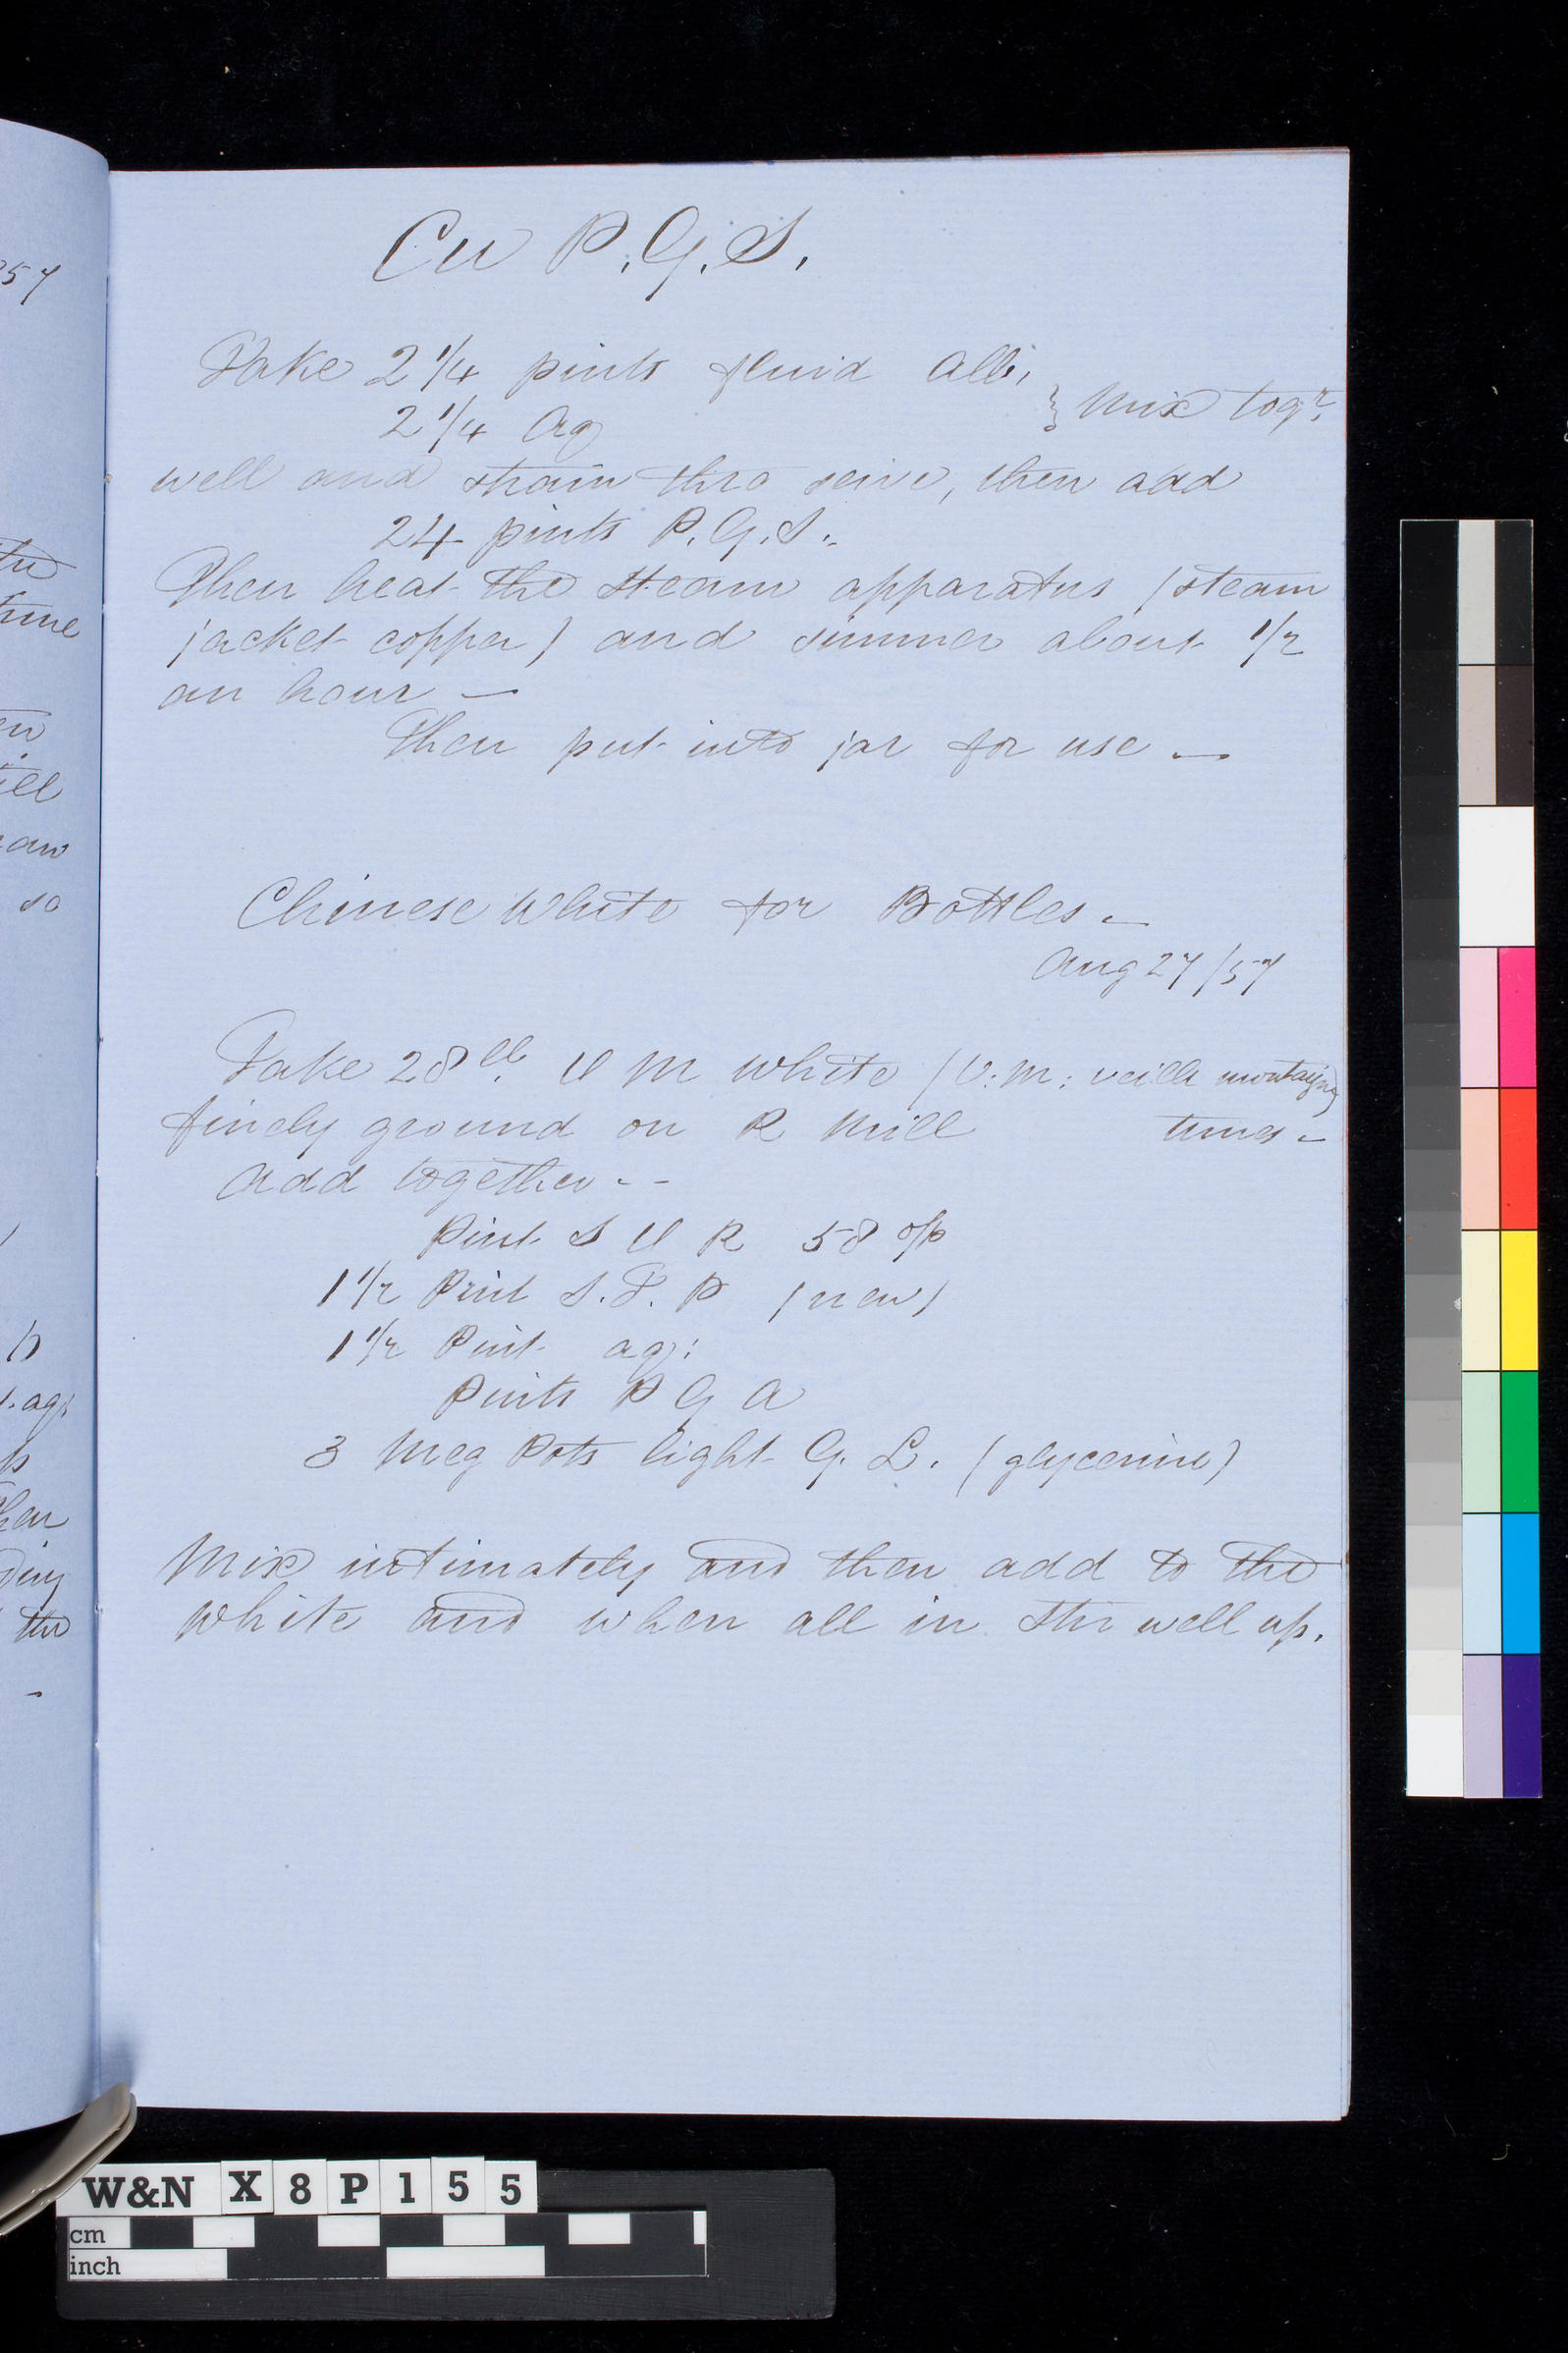 Cu P.G.S.
Take 2 1/4 pints fluid Alb.
2 1/4 Aq } Mix togr.
well and strain thro seive, then add
24 pints P.G.S.
Then heat the steam apparatus (steam
jacket copper) and simmer about 1/2
an hour —
Then put into jar for use —
Chinese White for Bottles —
Aug 27/57
Take 28 lb. V M White (V: M: veille montaigne)
finely ground on R Mill times —
Add together - -
Pint S V R 58 o/p
1 1/2 Pint S.T.P (new)
1 1/2 Pint aq:
Pints P G A
3 Meg Pots light G. L. (glycerine)
Mix intimately and then add to the
White and when all in stir well up.
57
the
time
ill
so
aq.
the
W&N X8P155
cm
inch